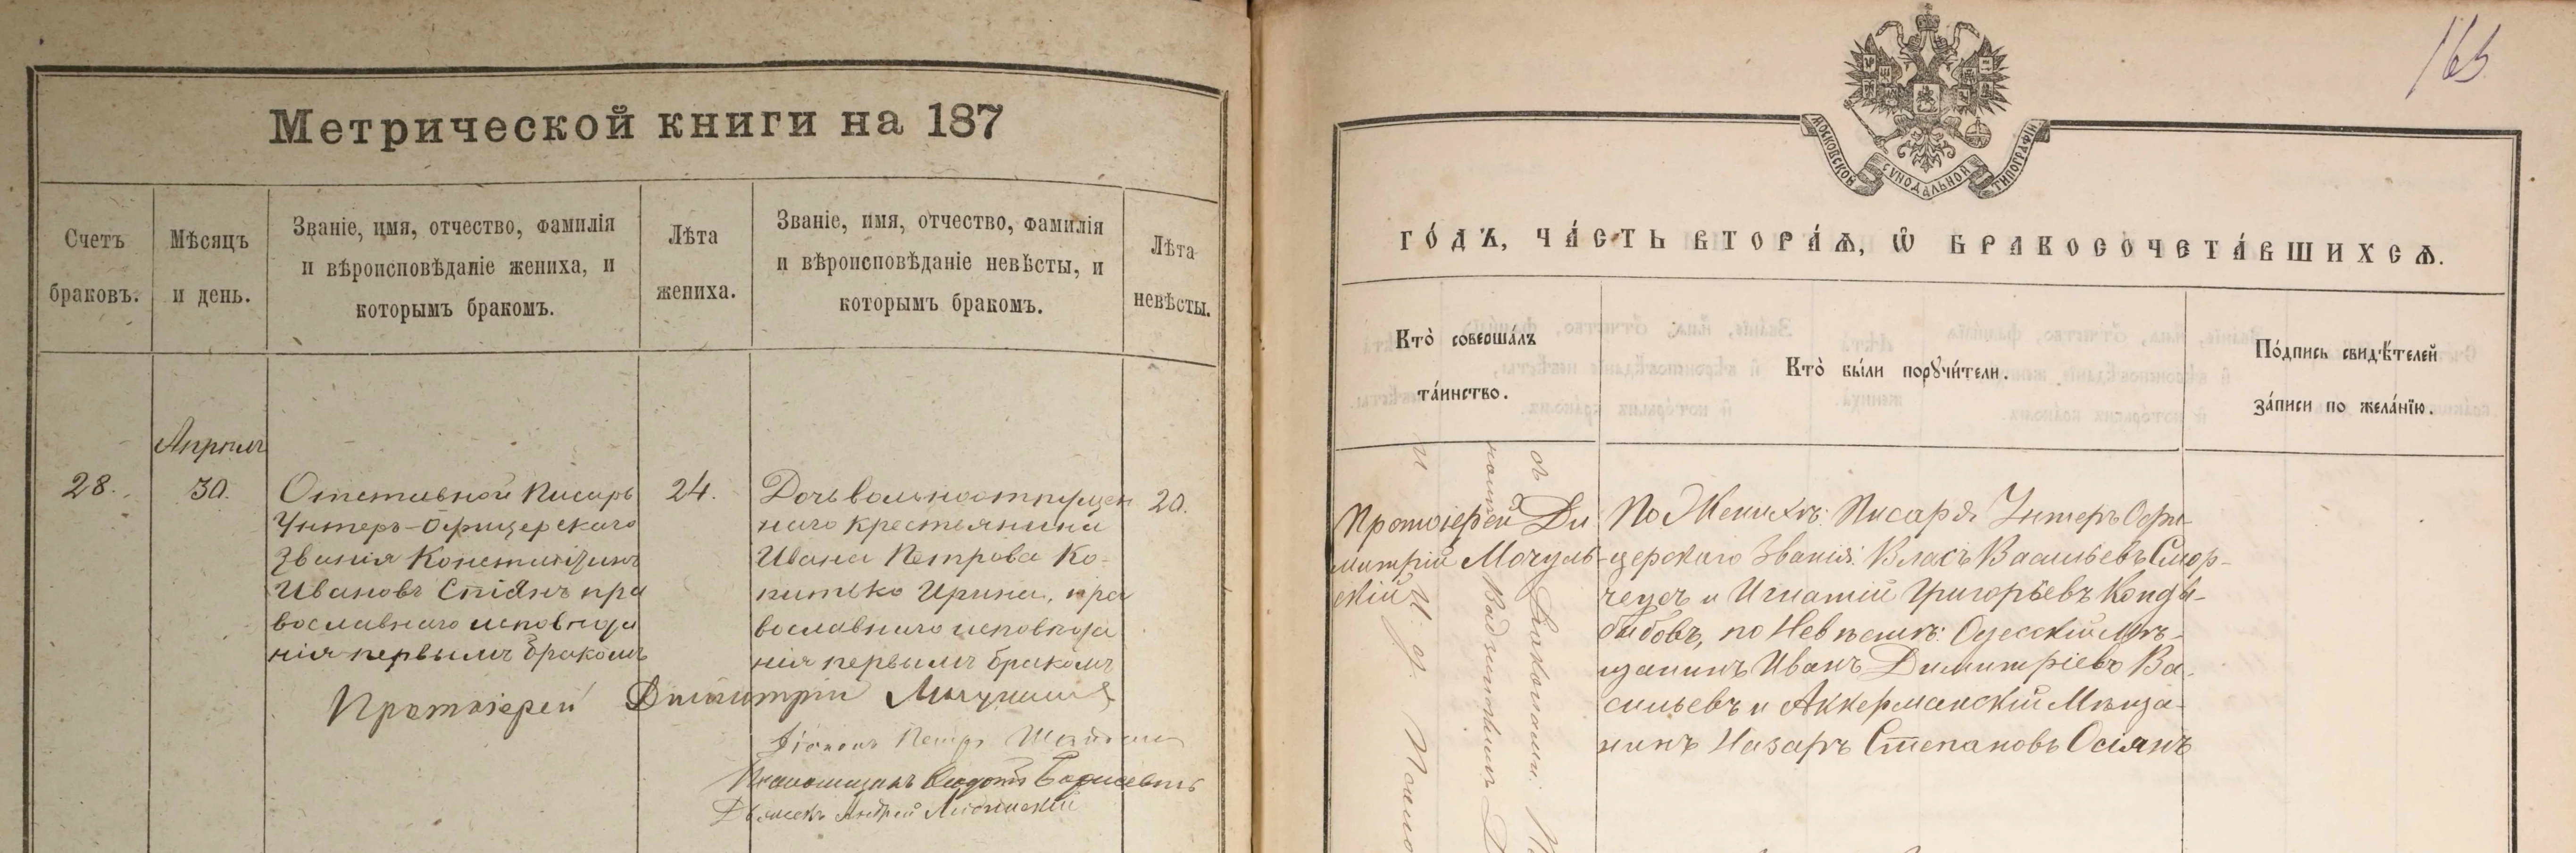 Метрической книги на 187
Счетъ
браковъ.
Мѣсяцъ
и день.
Званіе, имя, отчество, фамилія
и вѣроисповѣданіе жениха, и
которымъ бракомъ.
Лѣта
жениха.
Званіе, имя, отчество, фамилія
и вѣроисповѣданіе невѣсты, и
которымъ бракомъ.
Лѣта
невѣсты.
28.
Апрѣль
30.
Отставной Писарь
Унтеръ-Офицерскаго
Званія Константинъ
Ивановъ Стоянъ пра
вославнаго исповѣда
нія первымъ бракомъ
24.
Дочь вольноотпущен
наго крестьянина
Ивана Петрова Ко-
питько Ирина, пра
вославнаго исповѣда
нія первымъ бракомъ
20.
Протоіерей Димитрій
Діаконъ Петръ
Псаломщикъ Федотъ Борисевичъ
Андрей
165
МОСКОВСКОЙ СѴНОДАЛЬНОЙ ТИПОГРАФІИ
го́дъ, ча́сть втора́ѧ, ѡ҆ бракосочета́вшихсѧ.
Кто̀ соверша́лъ
та́инство.
Кто̀ бы́ли порꙋчи́тели.
По́дпись свидѣ́телей
за́писи по жела́нїю.
Протоіерей Ди
митрій Мочуль-
скій
По Женихѣ: Писаря Унтеръ Офи-
церскаго Званія: Власъ Васильевъ Смор-
и Игнатій Григорьевъ
по Невѣстѣ: Одесскій Мѣ-
щанинъ Иванъ Димитріевъ Ва-
сильевъ и Аккерманскій Мѣща-
нинъ Назаръ Степановъ Осіянъ